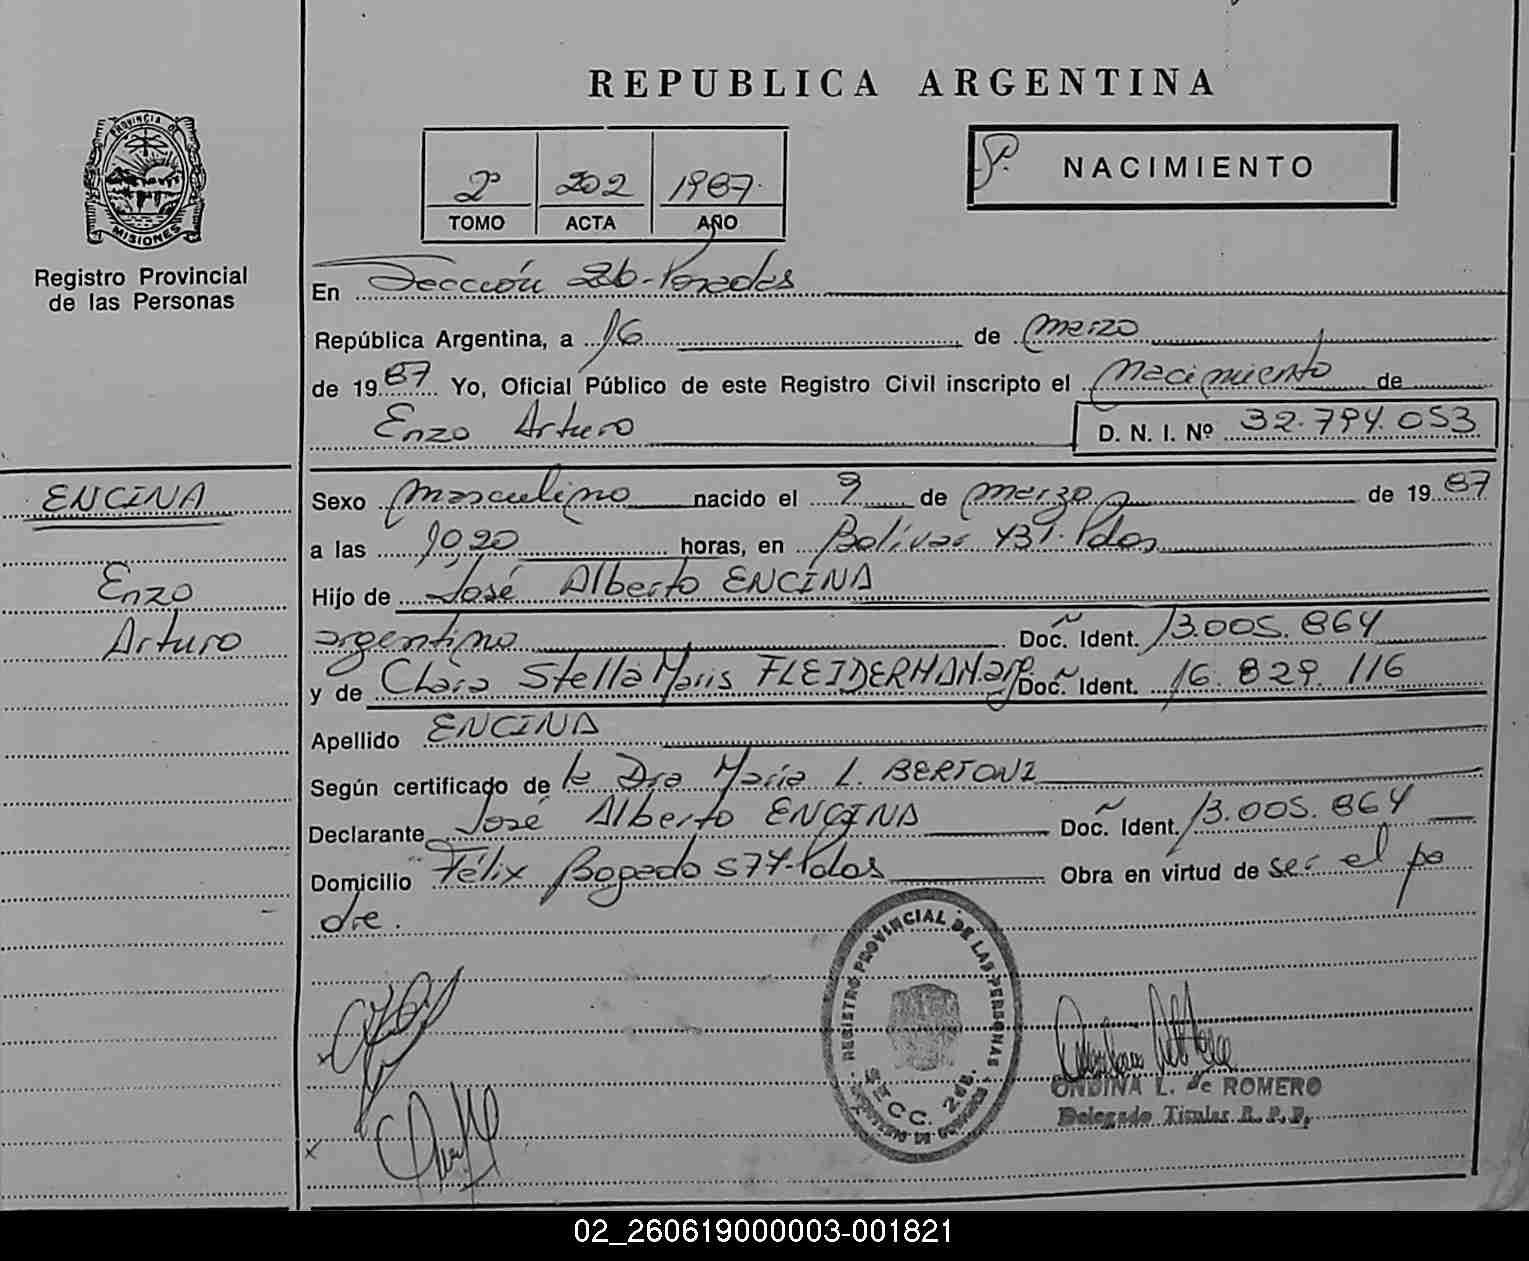 REPUBLICA ARGENTINA
PROVINCIA DE
MISIONES
Registro Provincial
de las Personas
2º 202 1987.
TOMO ACTA AÑO
NACIMIENTO
En Sección 2da-Posadas
República Argentina, a 16 de marzo
de 1987 Yo, Oficial Público de este Registro Civil inscripto el Nacimiento de
Enzo Arturo D. N. I. Nº 32.794.053
ENCINA
Enzo
Arturo
Sexo masculino nacido el 9 de marzo de 1987
a las 10,20 horas, en Bolívar 431. Pdas
Hijo de José Alberto ENCINA
argentino Doc. Ident. 13.005.864
y de Clara Stella Maris FLEIDERMAN arg Doc. Ident. 16.829.116
Apellido ENCINA
Según certificado de la Dra María L. BERTONI
Declarante José Alberto ENCINA Doc. Ident. 13.005.864
Domicilio Félix Bogado 574-Pdas Obra en virtud de ser el pa
dre.
REGISTRO PROVINCIAL DE LAS PERSONAS
SECC. 2da.
ONDINA L. de ROMERO
Delegado Titular R. P. P.
02_260619000003-001821